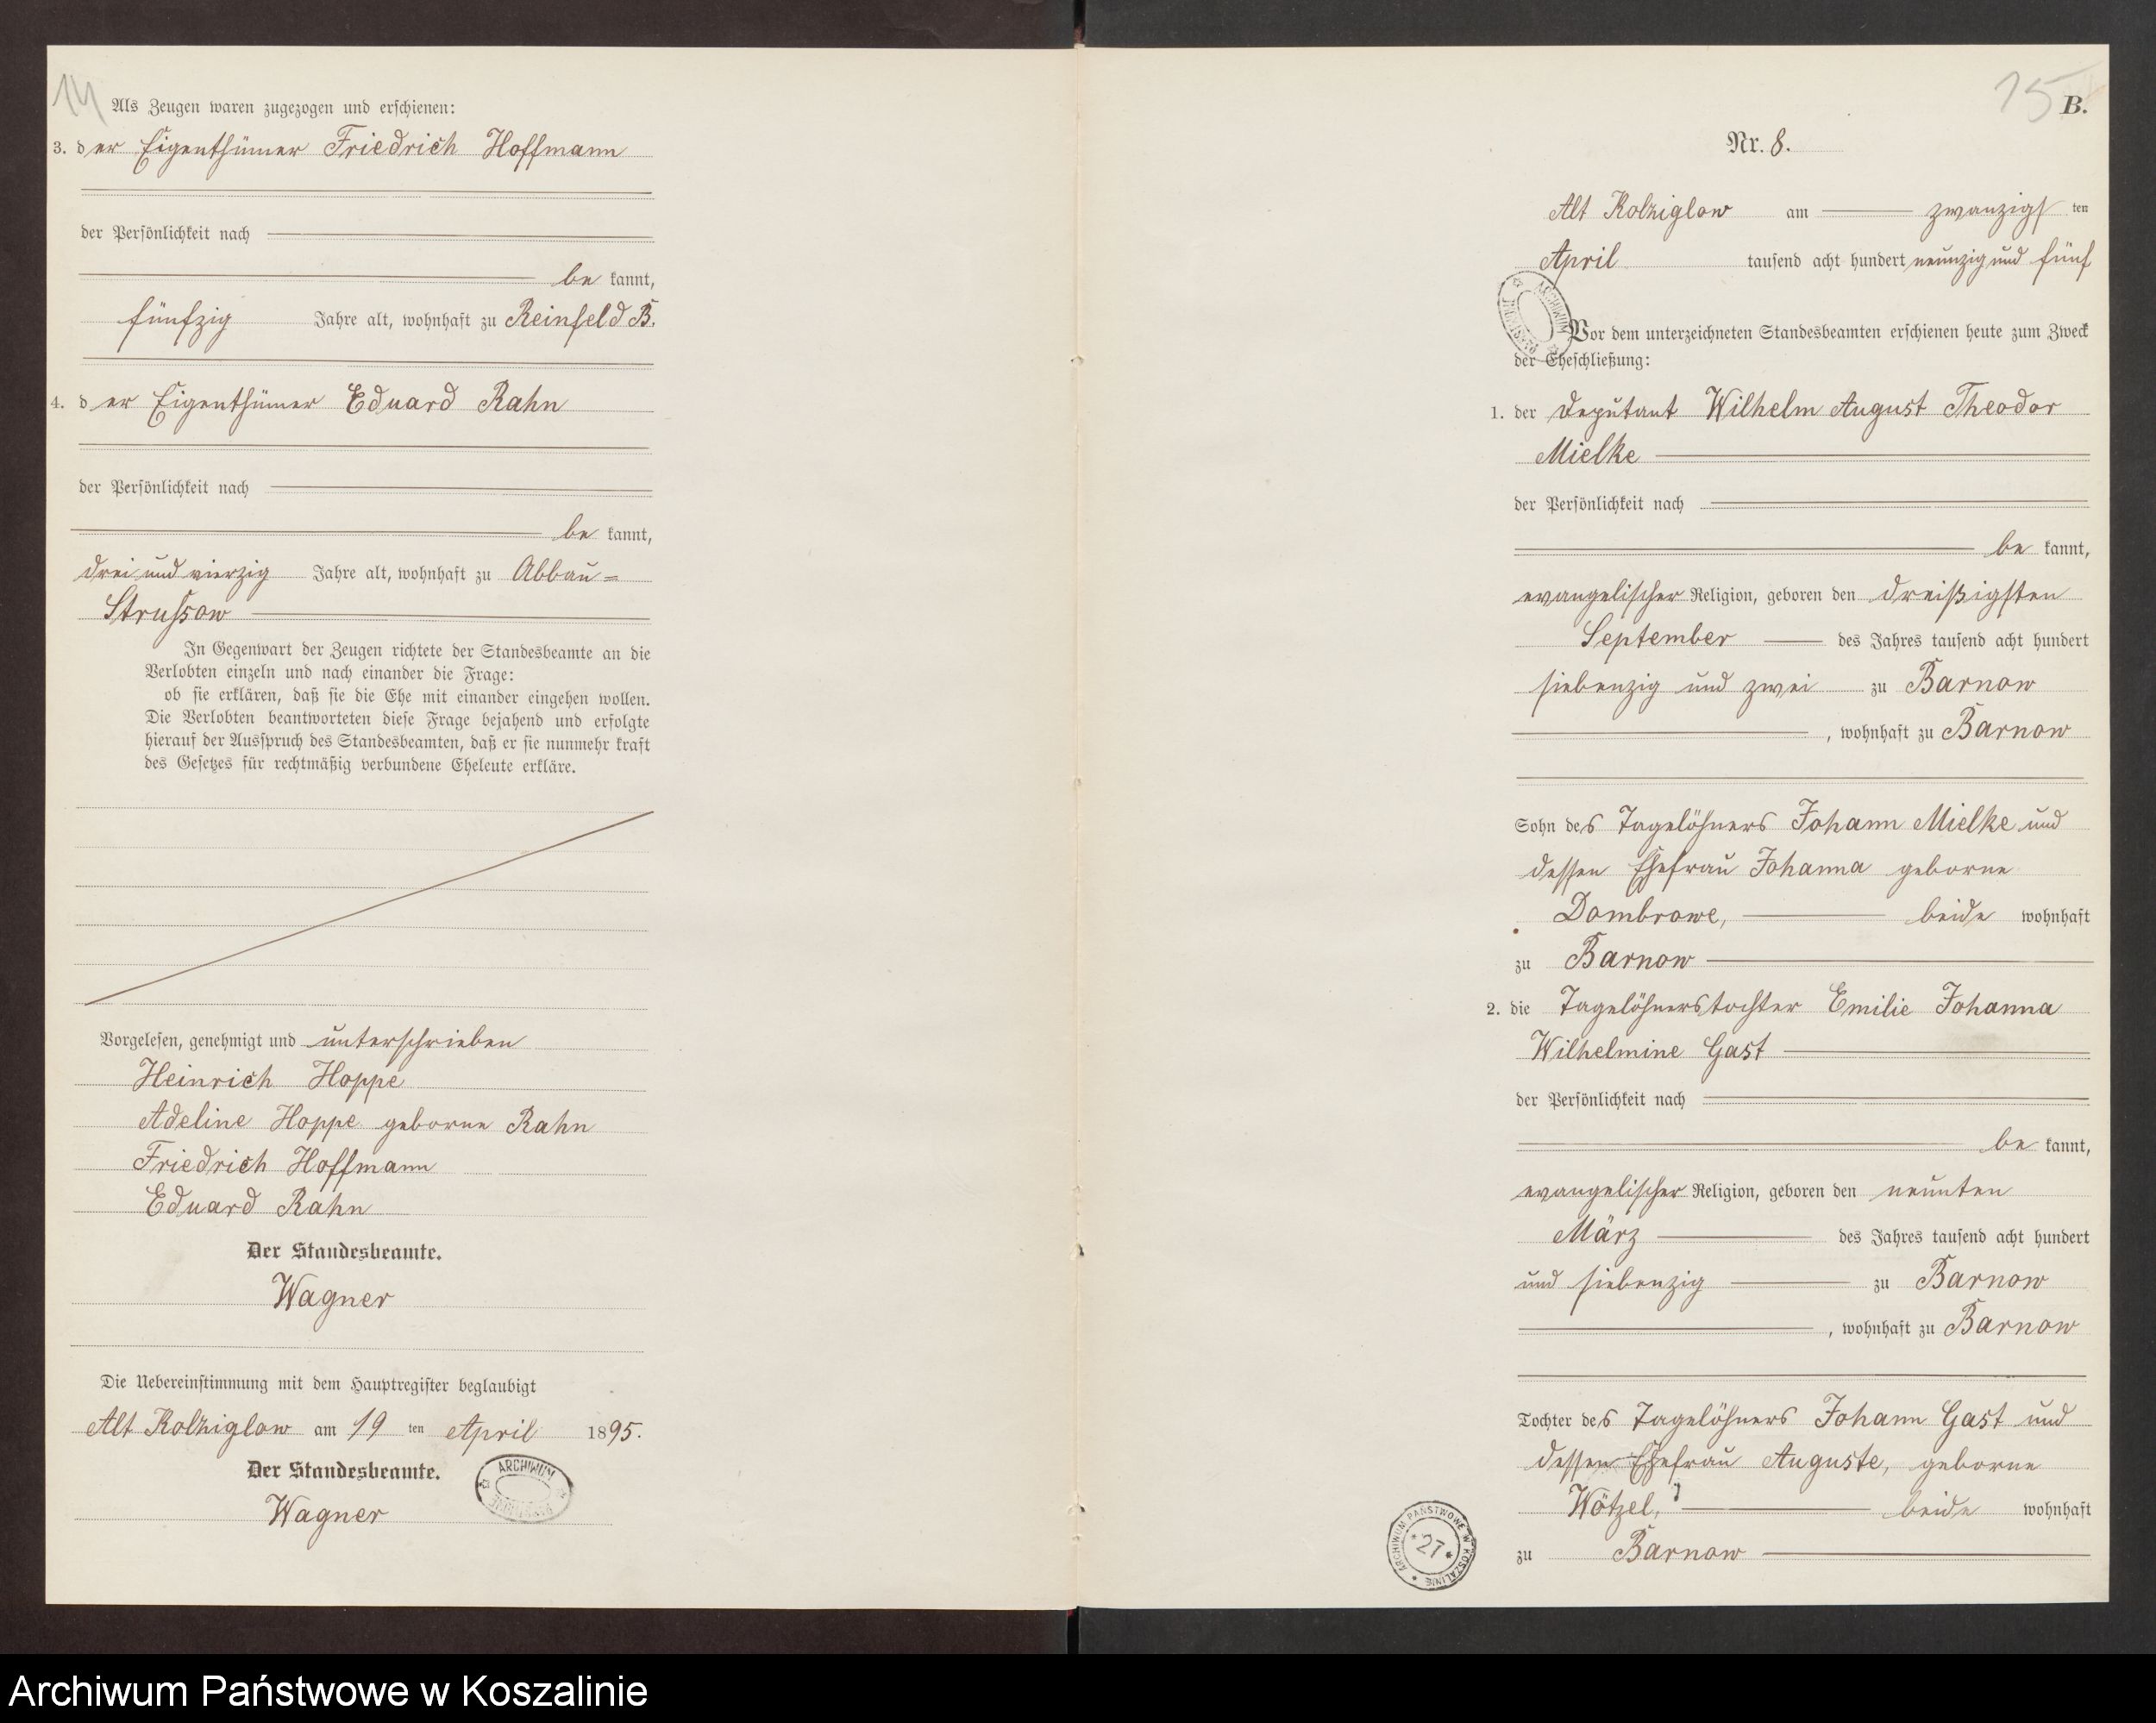 14
Als Zeugen waren zugezogen und erschienen:
3. der Eigenthümer Friedrich Hoffmann
der Persönlichkeit nach
be kannt,
fünfzig Jahre alt, wohnhaft zu Reinfeld B.
4. der Eigenthümer Eduard Rahn
der Persönlichkeit nach
be kannt,
drei und vierzig Jahre alt, wohnhaft zu Abbau=
Strussow
In Gegenwart der Zeugen richtete der Standesbeamte an die
Verlobten einzeln und nach einander die Frage:
ob sie erklären, daß sie die Ehe mit einander eingehen wollen.
Die Verlobten beantworteten diese Frage bejahend und erfolgte
hierauf der Ausspruch des Standesbeamten, daß er sie nunmehr kraft
des Gesetzes für rechtmäßig verbundene Eheleute erkläre.
Vorgelesen, genehmigt und unterschrieben
Heinrich Hoppe
Adeline Hoppe geborne Rahn
Friedrich Hoffmann
Eduard Rahn
Der Standesbeamte.
Wagner
Die Uebereinstimmung mit dem Hauptregister beglaubigt
Alt Kolziglow am 19 ten April 1895.
Der Standesbeamte.
Wagner
ARCHIWUM
15
B.
Nr. 8.
Alt Kolziglow am zwanzigs ten
April tausend acht hundert neunzig und fünf
ARCHIWUM
Vor dem unterzeichneten Standesbeamten erschienen heute zum Zweck
der Eheschließung:
1. der Deputant Wilhelm August Theodor
Mielke
der Persönlichkeit nach
be kannt,
evangelischer Religion, geboren den dreißigsten
September des Jahres tausend acht hundert
siebenzig und zwei zu Barnow
, wohnhaft zu Barnow
Sohn des Tagelöhners Johann Mielke und
dessen Ehefrau Johanna geborne
Dombrowe, beide wohnhaft
zu Barnow
2. die Tagelöhnerstochter Emilie Johanna
Wilhelmine Gast
der Persönlichkeit nach
be kannt,
evangelischer Religion, geboren den neunten
März des Jahres tausend acht hundert
und siebenzig zu Barnow
, wohnhaft zu Barnow
Tochter des Tagelöhners Johann Gast und
dessen Ehefrau Auguste, geborne
Wötzel, beide wohnhaft
zu Barnow
ARCHIWUM PAŃSTWOWE W KOSZALINIE
* 27 *
Archiwum Państwowe w Koszalinie